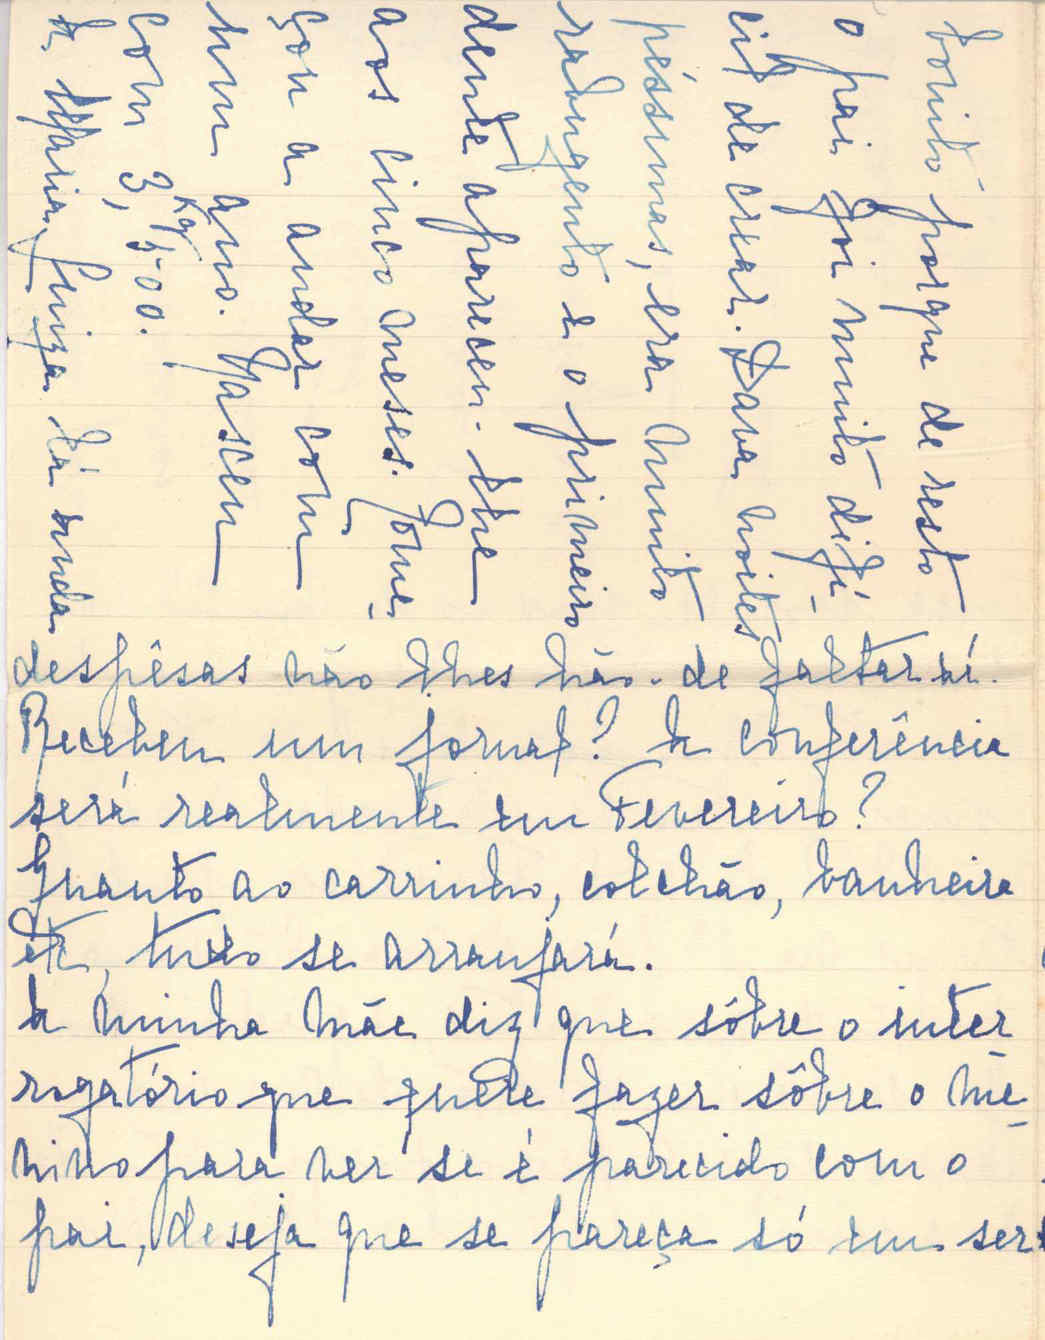 despêsas não lhes hão-de faltar aí.
Recebem um jornal? A conferência
será realmente em Fevereiro?
Quanto ao carrinho, colchão, banheira
etc, tudo se arranjará.
A minha mãe diz que sôbre o inter
rogatório que quere fazer sôbre o me-
nino para ver se é parecido com o
pai, deseja que se pareça só em ser
bonito porque de resto
o pai foi muito difí-
cil de crear. Dava noites
péssimas, era muito
rabugento e o primeiro
dente apareceu-lhe
aos cinco meses. Come-
çou a andar com
um ano. Nasceu
com 3,Kg 500.
A Maria Luiza lá anda